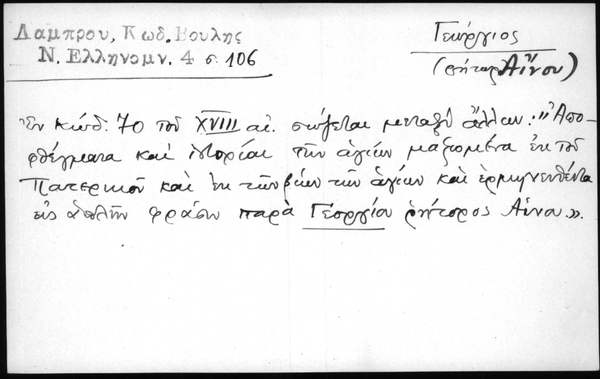 Λαμπρου, Κωδ. Βουλης
Ν. Ελληνομν. 4 σ. 106
Γεώργιος
(ρήτωρ Αἴνου)
Ἐν κώδ. 70 τοῦ XVIII αἰ. σώζεται μεταξὺ ἄλλων: "Ἀπο-
φθέγματα καὶ ἱστορίαι τῶν ἁγίων μαζωμένα ἐκ τοῦ
Πατερικοῦ καὶ ἐκ τῶν βίων τῶν ἁγίων καὶ ἑρμηνευθέντα
εἰς ἁπλῆν φράσιν παρὰ Γεωργίου ῥήτορος Αἴνου".